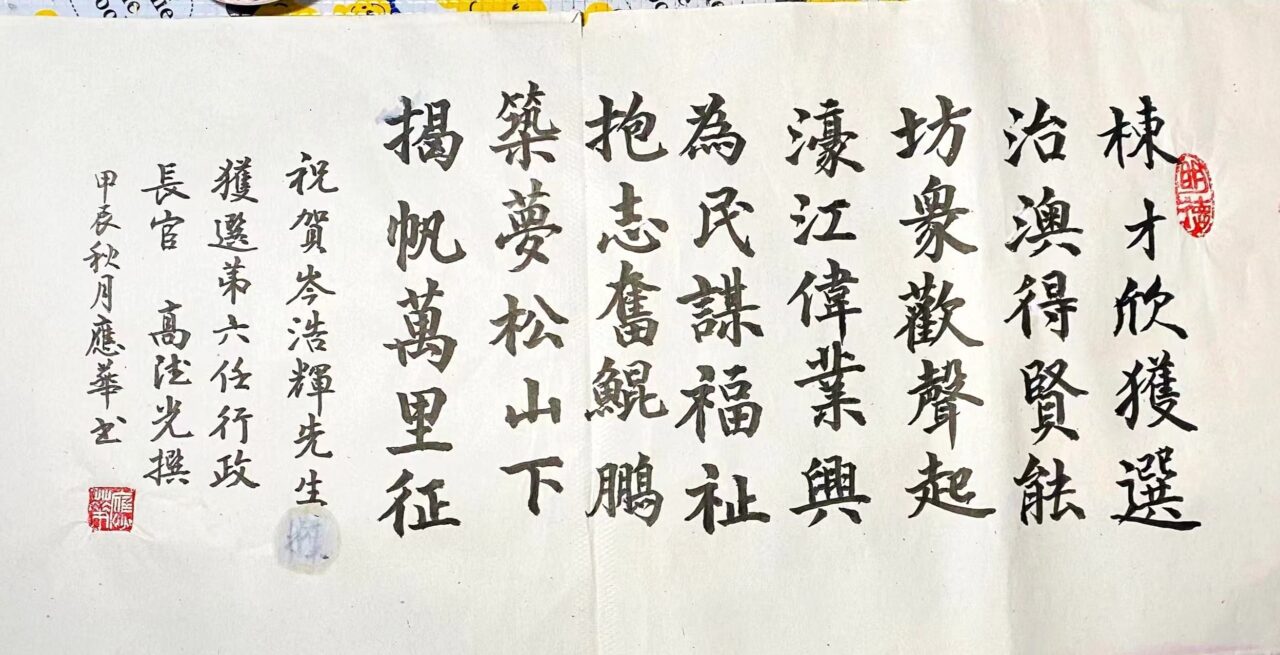 明德
棟才欣獲選
治澳得賢能
坊衆歡聲起
濠江偉業興
為民謀福祉
抱志奮鯤鵬
築夢松山下
揭帆萬里征
祝賀岑浩輝先生
獲選第六任行政
長官 高德光撰
甲辰秋月應華书